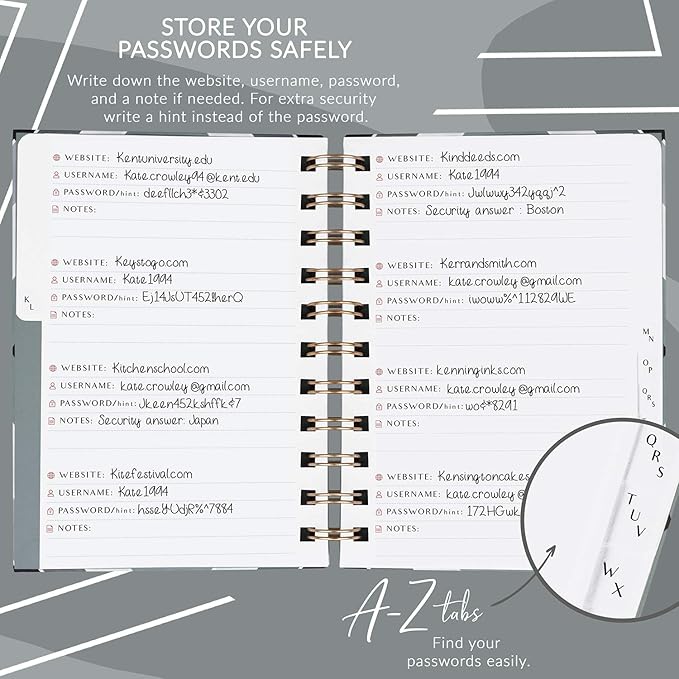 STORE YOUR
PASSWORDS SAFELY
Write down the website, username, password,
and a note if needed. For extra security
write a hint instead of the password.
WEBSITE: Kentuniversity.edu
USERNAME: Kate.crowley94@kent.edu
PASSWORD/hint: deefllch3*&3302
NOTES:
WEBSITE: Keystogo.com
USERNAME: Kate1994
PASSWORD/hint:
NOTES:
WEBSITE: Kitchenschool.com
USERNAME: kate.crowley@gmail.com
PASSWORD/hint: Jkeen452kshffk&7
NOTES: Security answer: Japan
WEBSITE: Kitefestival.com
USERNAME: Kate1994
PASSWORD/hint: hsseYUdjR%^7884
NOTES:
K
L
WEBSITE: Kinddeeds.com
USERNAME: Kate1994
PASSWORD/hint: Jwlwwy342yqqj^2
NOTES: Security answer : Boston
WEBSITE: Kerrandsmith.com
USERNAME: kate.crowley@gmail.com
PASSWORD/hint: iwoww%^112829WE
NOTES:
WEBSITE: kenninginks.com
USERNAME: kate.crowley@gmail.com
PASSWORD/hint: wo&*8291
NOTES:
WEBSITE: Kensingtoncakes
USERNAME: kate.crowley@
PASSWORD/hint: 172HGwk
NOTES:
MN
OP
QRS
QRS
TUV
WX
A-Z tabs
Find your
passwords easily.